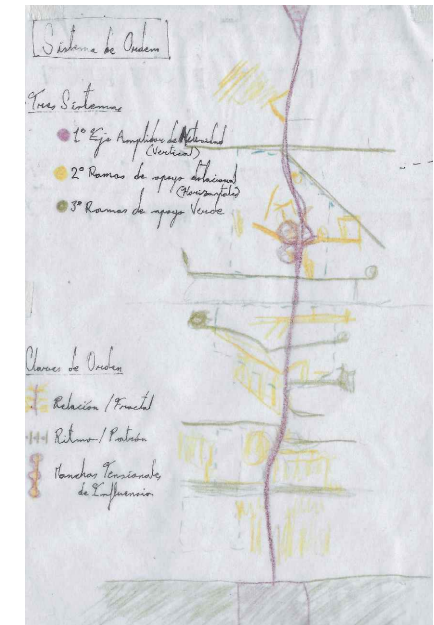 Sistema de Orden
Tres Sistemas
1º Eje Amplitud de Actividad
(Vertical)
2º Ramas de apoyo
(Horizontales)
3º Ramas de apoyo Verde
Claves de Orden
Relación / Fractal
Ritmo / Patrón
Manchas Tensionales
de Influencia